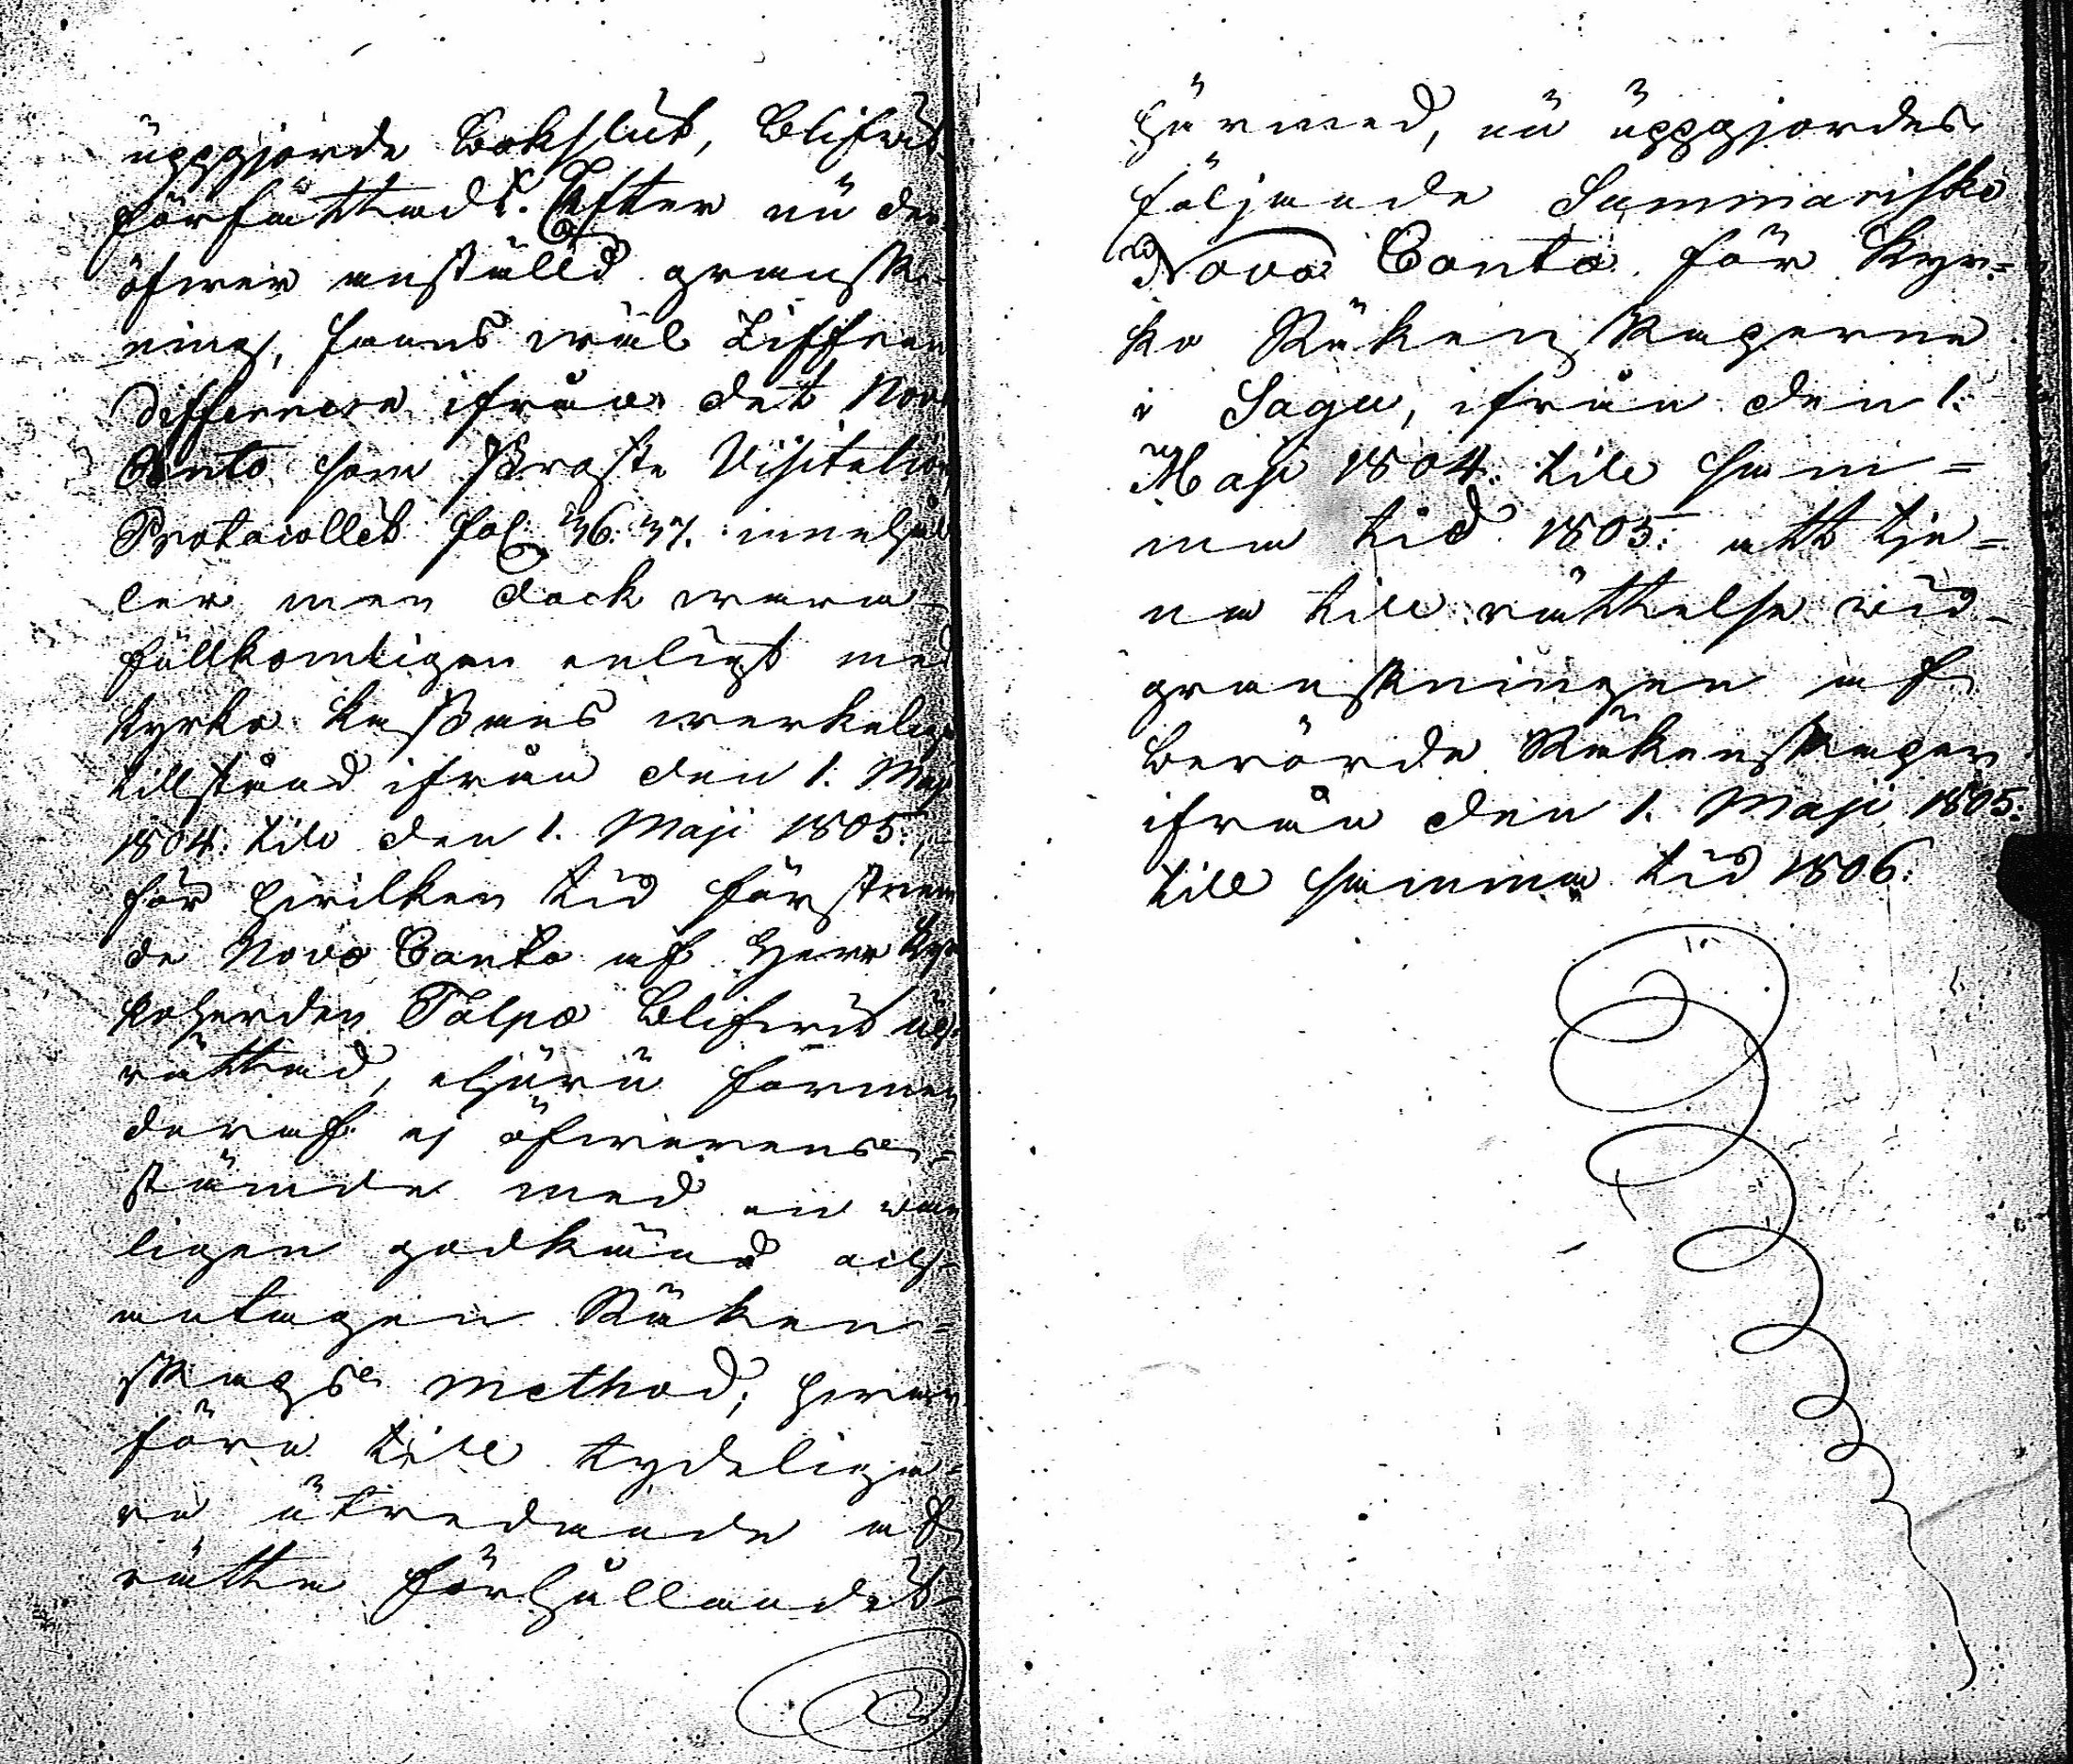 uppgjorde Bokslut, Blifvit
författad. Efter nu der
öfwer anställd gransk-
ning, fanns wäl Ziffran
differera ifrån det Novo
Conto som Prosste Visitation
Protocollet fol. 36. 37. innehål
ler men dock wara
fullkomligen enligt med
Kyrko Kassans werkelige
tillstånd ifrån den 1. Maji
1804. till den 1. Maji 1805.,
för hwilken tid förstnem
de Novo Conto af Herr Kyr
koherden Talpo Blifwit up
rättad, ehuru formen
deraf ej öfwerens-
stämde med en wan
ligen godkänd och
antagen Räken-
skaps method; hwar
före till tydeliga-
re utredande af
rätta förhållandet

härmed, nu uppgjordes
följande Summariska
Novo Conto för Kyr-
ko Räkenskaperne
i Sagu, ifrån den 1.
Maji 1804. till sam-
ma tid 1805. att tje-
na till rättelse wid
granskningen af
berörde Räkenskaper
ifrån den 1. Maji 1805.
till samma tid 1806.